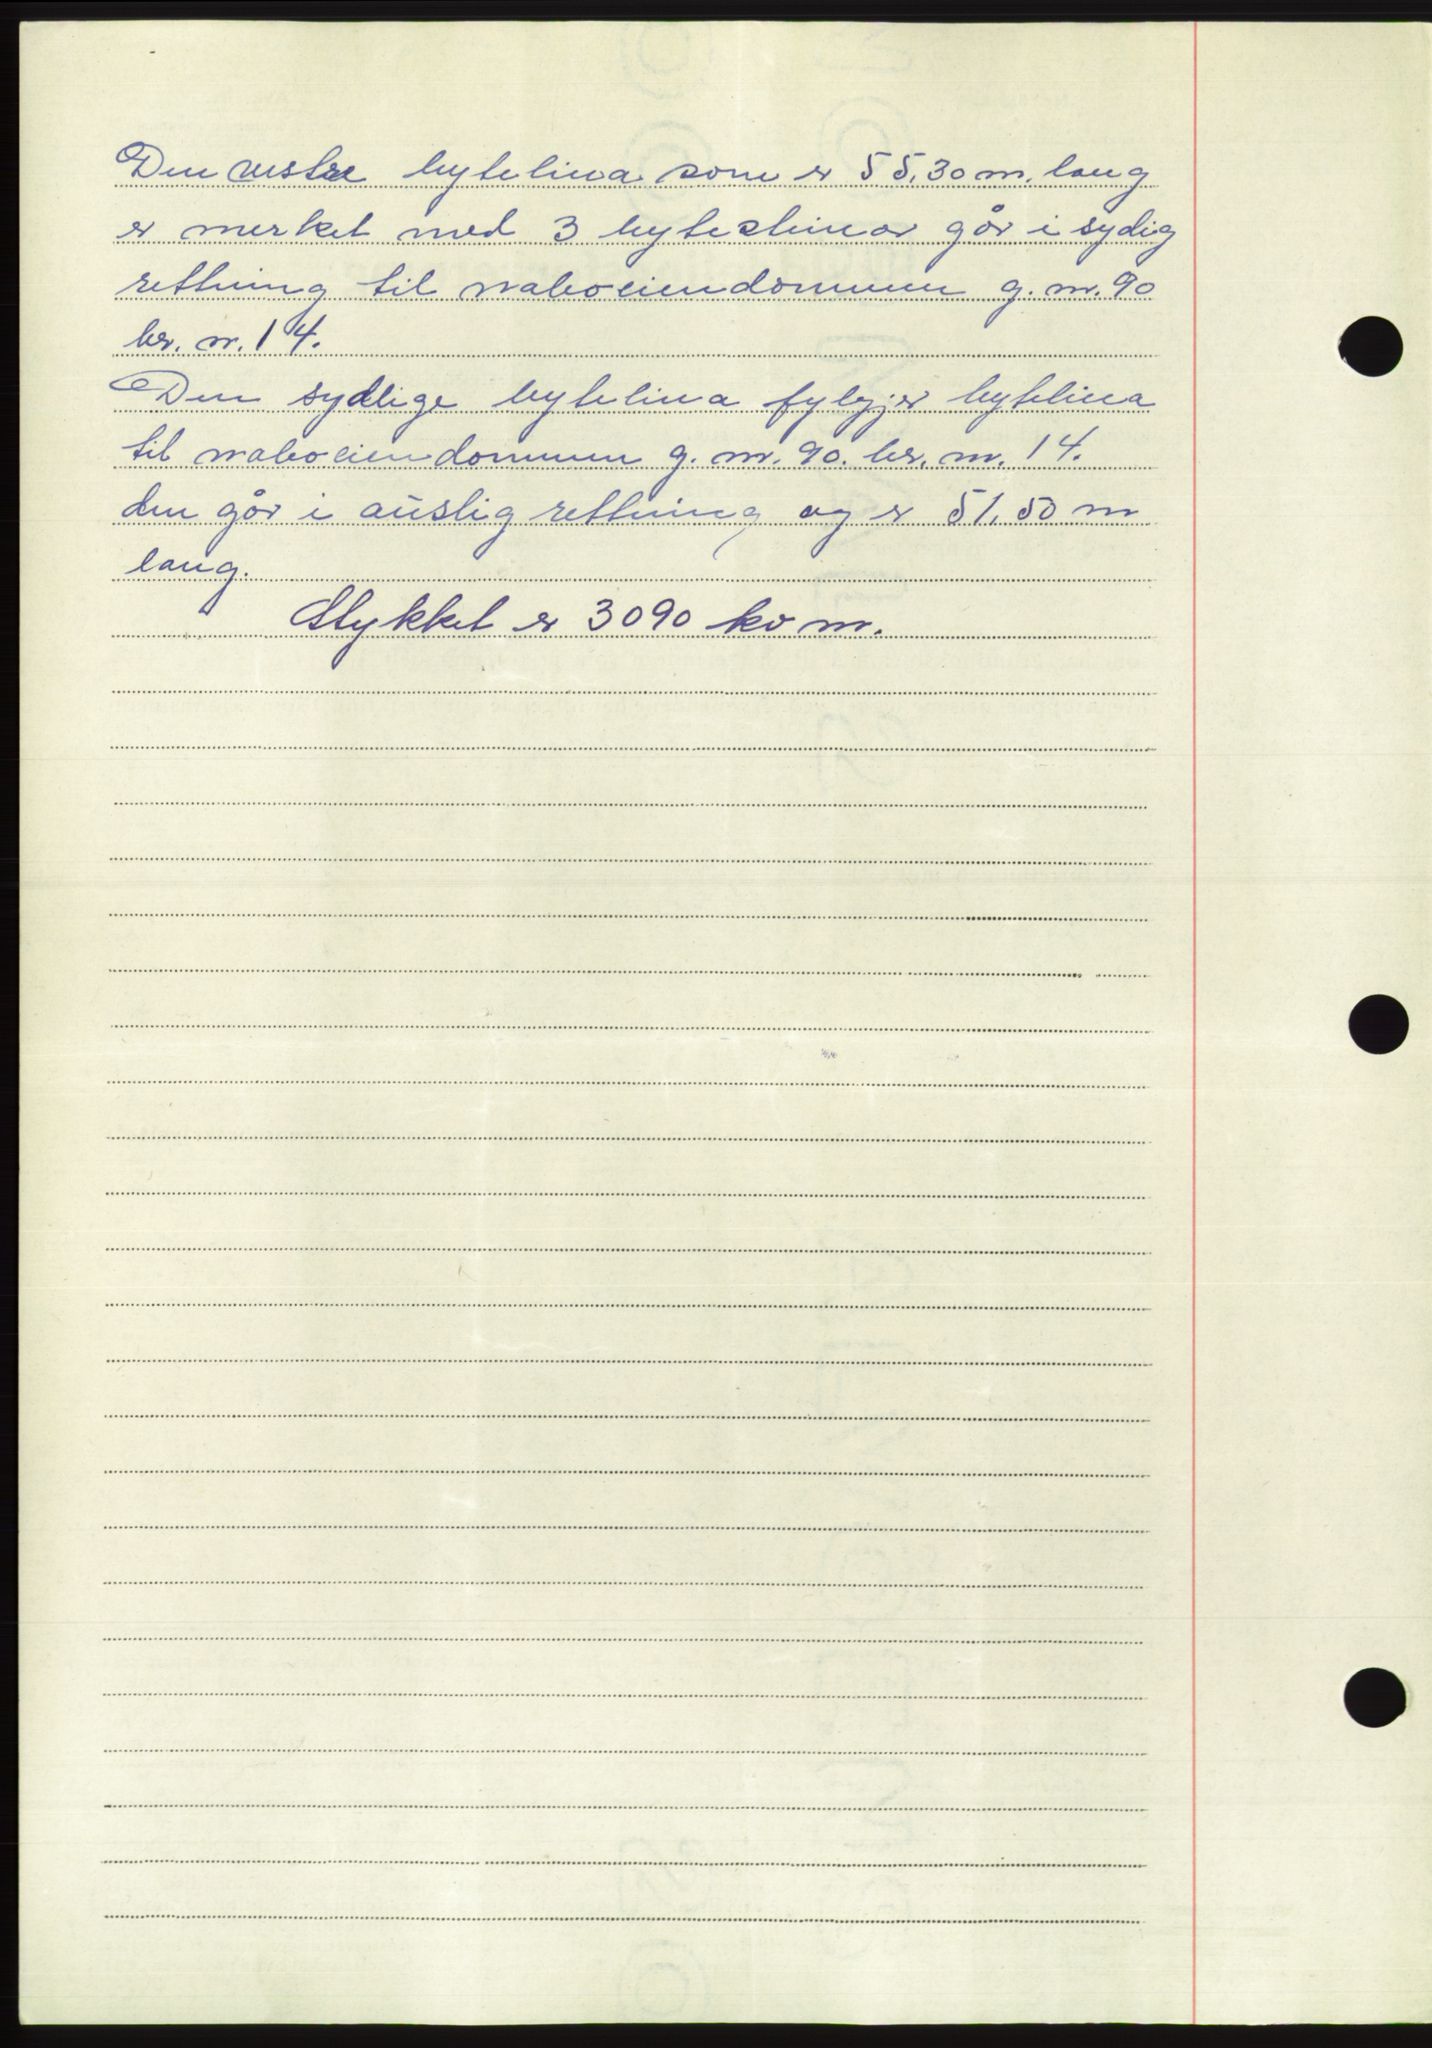 Den vestre bytelina som er 55.30 m. lang
er merket med 3 bytesteinar går i sydig
rettning til naboeiendommen g. nr. 90
br. nr. 14.
Den sydlige bytelina fylgjer bytelina
til naboeiendommen g. nr. 90. br. nr. 14.
den går i austlig rettning og er 51.50 m
lang.
Stykket er 3090 kv m.